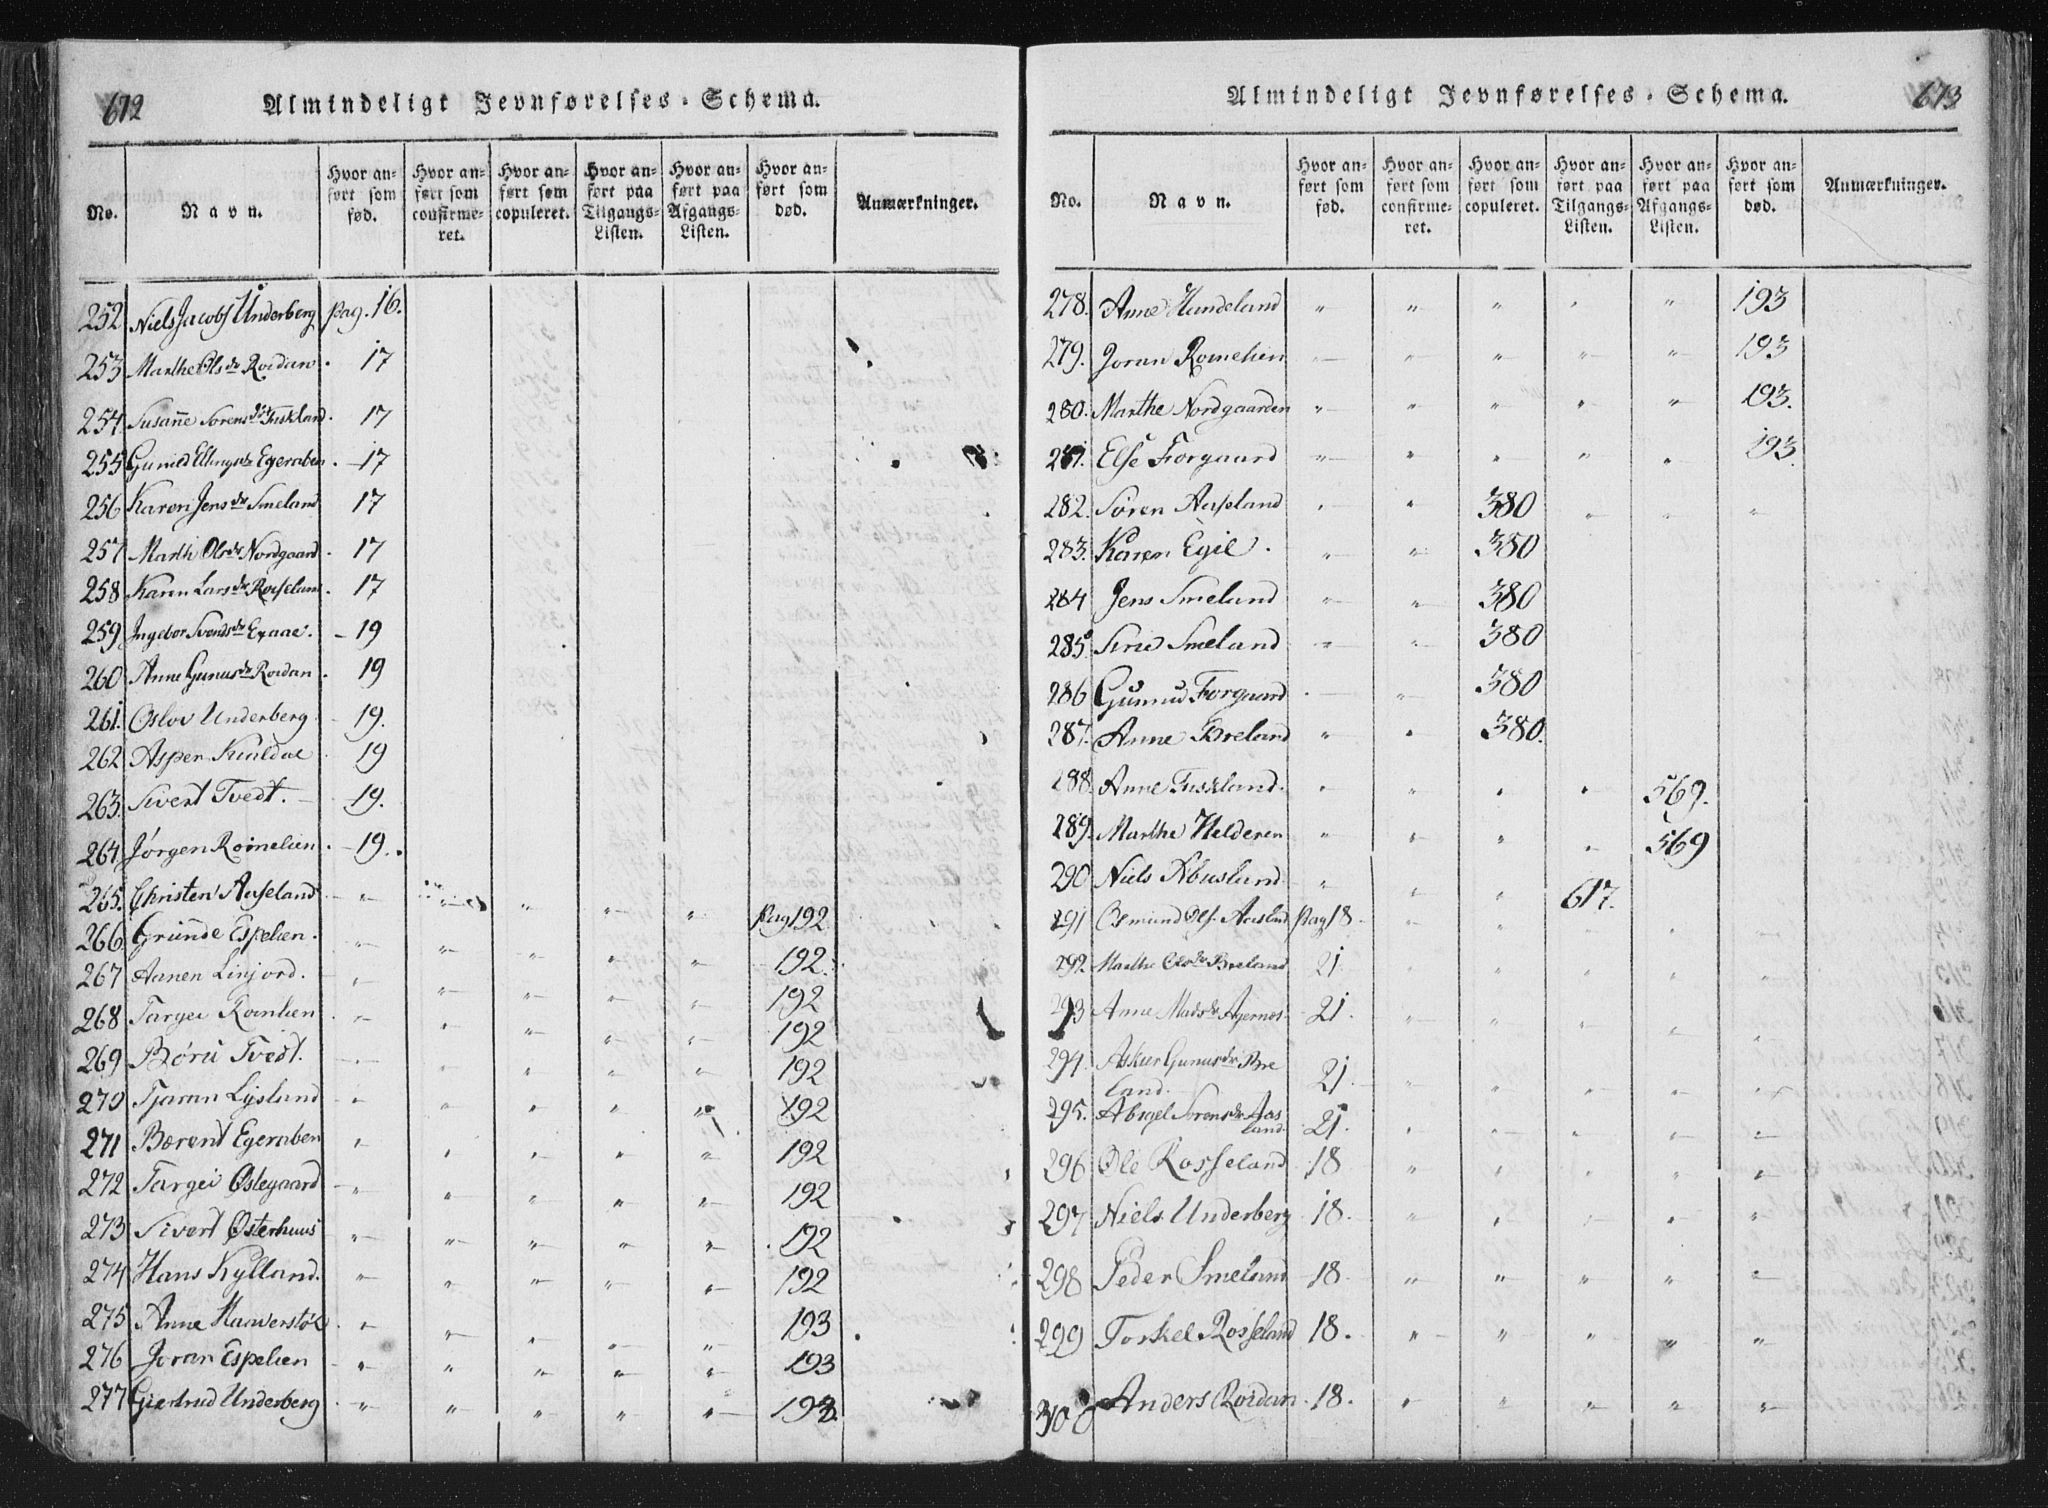 672
Almindeligt Jevnførelses-Schema.
No.
Navn.
Hvor anført som fød.
Hvor anført som confirmeret.
Hvor anført som copuleret.
Hvor anført paa Tilgangs-Listen.
Hvor anført paa Afgangs-Listen.
Hvor anført som død.
Anmærkninger.
252 Niels Jacobs Underberg Pag. 16.
253 Marthe Olsdr Roidan. 17
254 Susañe Sorensdr 17
255 Guñild Ellingsdr Egeraben. 17
256 Karen Jensdr Smeland 17
257 Marth Olsdr Nordgaard. 17
258 Karen Larsdr Rosseland. 17
259 Ingebor Svendsdr 19
260 Anne Gunusdr Roidan. 19
261. Oslov Underberg 19.
262 Asper 19
263. Sivert Tvedt. 19.
264 Jórgen Romelien. 19.
265. Christen Aaseland " " " " " Pag 192
266. Grunde Espelien. " " " " " 192.
267 Aanen Linjord. " " " " " 192
268 Targei Romlien " " " " " 192
269 Tvedt. " " " " " 192
270 Tjaran Lysland " " " " " 192
271 Berent Egeraben " " " " " 192
272 Targei Østegaard " " " " " 192
273 Sivert Østerhuus " " " " " 192
274 Hans Kylland. " " " " " 192
275 Anne " " " " " 193
276 Joran Espelien " " " " " 193
277 Giertrud Underberg " " " " " 193.
Almindeligt Jevnførelses-Schema.
673
No.
Navn.
Hvor anført som fød.
Hvor anført som confirmeret.
Hvor anført som copuleret.
Hvor anført paa Tilgangs-Listen.
Hvor anført paa Afgangs-Listen.
Hvor anført som død.
Anmærkninger.
278. Anne Hundeland " " " " " 193
279. Joran Romelien " " " " " 193
280. Marthe Nordgaarden " " " " " 193.
281. Else Forgaard " " " " " 193.
282. Sóren Aaseland " " 380 " " "
283. Karen Egil. " " 380
284 Jens Smeland " " 380
285. Siri Smeland " " 380
286 Gunnild Forgaard " " 380
287. Anne Breland " " 380.
288. Anne " " " " 569.
289. Marthe Helderen " " " " 569
290 Niels Abusland " " " 617.
291 Osmund Ols. Aasland Pag 18 " " " " "
292. Marthe Olsdr Breland 21 " " " " "
293 Anne Madsdr 21. " " " " "
294. Gunusdr Breland. 21. " " " " "
295. Abigel Sorensdr Aasland. 21. " " " " "
296 Ole Rosseland 18 " " " " "
297 Niels Underberg 18. " " " " "
298 Peder Smeland 18. " " " " "
299 Torkel Rosseland 18. " " " " "
300 Anders Roidan. 18. " " " " "